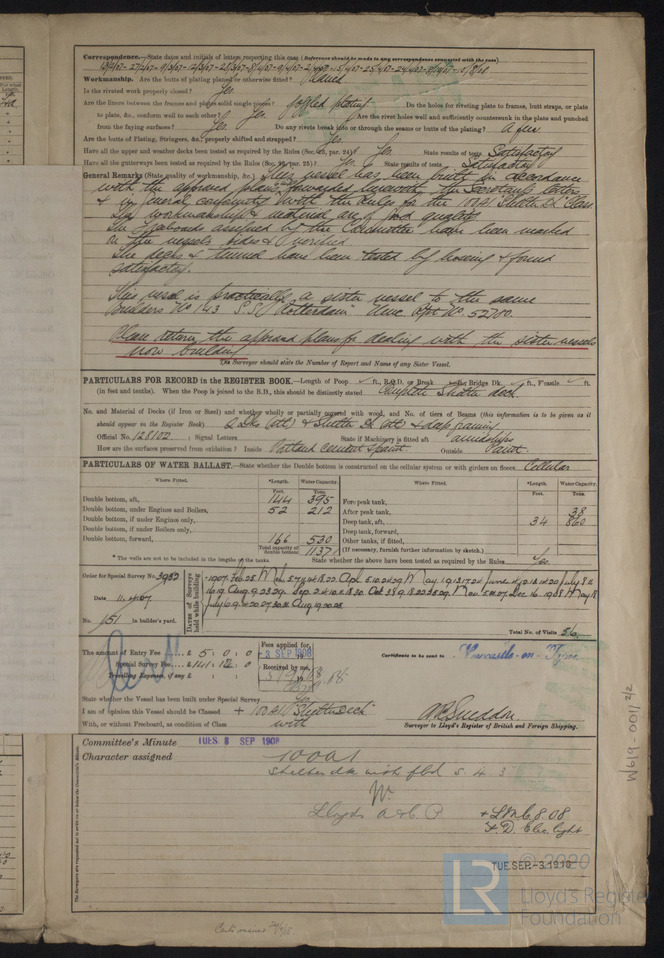 Correspondence.—State dates and initials of letters respecting this case (Reference should be made to any correspondence connected with the case)
Workmanship. Are the butts of plating planed or otherwise fitted? Planed
Is the riveted work properly closed? Yes
Are the liners between the frames and plates solid single pieces? joggled plating Do the holes for riveting plate to frames, butt straps, or plate
to plate, &c., conform well to each other? Yes. Are the rivet holes well and sufficiently countersunk in the plate and punched
from the faying surfaces? Yes. Do any rivets break into or through the seams or butts of the plating? a few
Are the butts of Plating, Stringers, &c., properly shifted and strapped? Yes.
Have all the upper and weather decks been tested as required by the Rules (Sec. par. 24)? Yes. State results of tests Satisfactory
Have all the gutterways been tested as required by the Rules (Sec. par. 25)? State results of tests. Satisfactory
General Remarks (State quality of workmanship, &c.) This vessel has been built in accordance
with the approved plans forwarded herewith, the Secretary's letter
& in general conformity with the Rules for the 100A1 Shelter Dk Class.
The workmanship & material are of good quality.
The freeboards assigned by the Committee have been marked
on the vessel's sides & verified
The decks & tunnel have been tested by hosing & found
satisfactory.
This vessel is practically a sister vessel to the same
Builders No 143 S.S. "Rotterdam" Nwc. Rpt. No. 52700.
Please return the approved plans for dealing with the sister vessels
now building
The Surveyor should state the Number of Report and Name of any Sister Vessel.
PARTICULARS FOR RECORD in the REGISTER BOOK.—Length of Poop ft., R.Q.D. or Break ft., Bridge Dk. ft., F'castle ft.
(in feet and tenths). When the Poop is joined to the B.D., this should be distinctly stated Complete Shelter deck
No. and Material of Decks (if Iron or Steel) and whether wholly or partially covered with wood, and No. of tiers of Beams (this information is to be given as it
should appear in the Register Book) 2 Dks (stl) & Shelter Dk (stl) & deep framing
Official No. 128102; Signal Letters State if Machinery is fitted aft amidships
How are the surfaces preserved from oxidation? Inside Portland cement & paint Outside Paint.
PARTICULARS OF WATER BALLAST.—State whether the Double bottom is constructed on the cellular system or with girders on floors. Cellular
Where Fitted. *Length. Water Capacity. Where Fitted. *Length. Water Capacity.
Feet. Tons. Feet. Tons.
Double bottom, aft, 144 395 Fore peak tank,
Double bottom, under Engines and Boilers, 52 212 After peak tank, 38
Double bottom, if under Engines only, Deep tank, aft, 34 860
Double bottom, if under Boilers only, Deep tank, forward,
Double bottom, forward, 166 530 Other tanks, if fitted,
Total capacity of double bottom 1137 (If necessary, furnish further information by sketch.)
* The wells are not to be included in the lengths of the tanks State whether the above have been tested as required by the Rules Yes
Order for Special Survey No. 3932
Date 11.4.07
No. 151 in builder's yard.
DATES of Surveys held while building
Total No. of Visits 56
The amount of Entry Fee £ 5 : 0 : 0 Fees applied for, 3 SEP 1908
Special Survey Fee £ 141 : 12 : 0 Received by me,
Travelling Expenses, if any £
Certificate to be sent to Newcastle-on-Tyne
State whether the Vessel has been built under Special Survey Yes
I am of opinion this Vessel should be Classed + 100A1 "Shelter Deck"
With, or without Freeboard, as condition of Class with
Surveyor to Lloyd's Register of British and Foreign Shipping.
Committee's Minute TUES. 8 SEP 1908
Character assigned 100A1
Shelter dk with fbd 5.4.3
Lloyds A & C P
+ LMC 8.08
F.D. Elec. light
TUE. SEP -3 1918
The Surveyors are requested not to write on or below the Committee's Minute.
W619-0011 2/2
LR © 2020
Lloyd's Register
Foundation